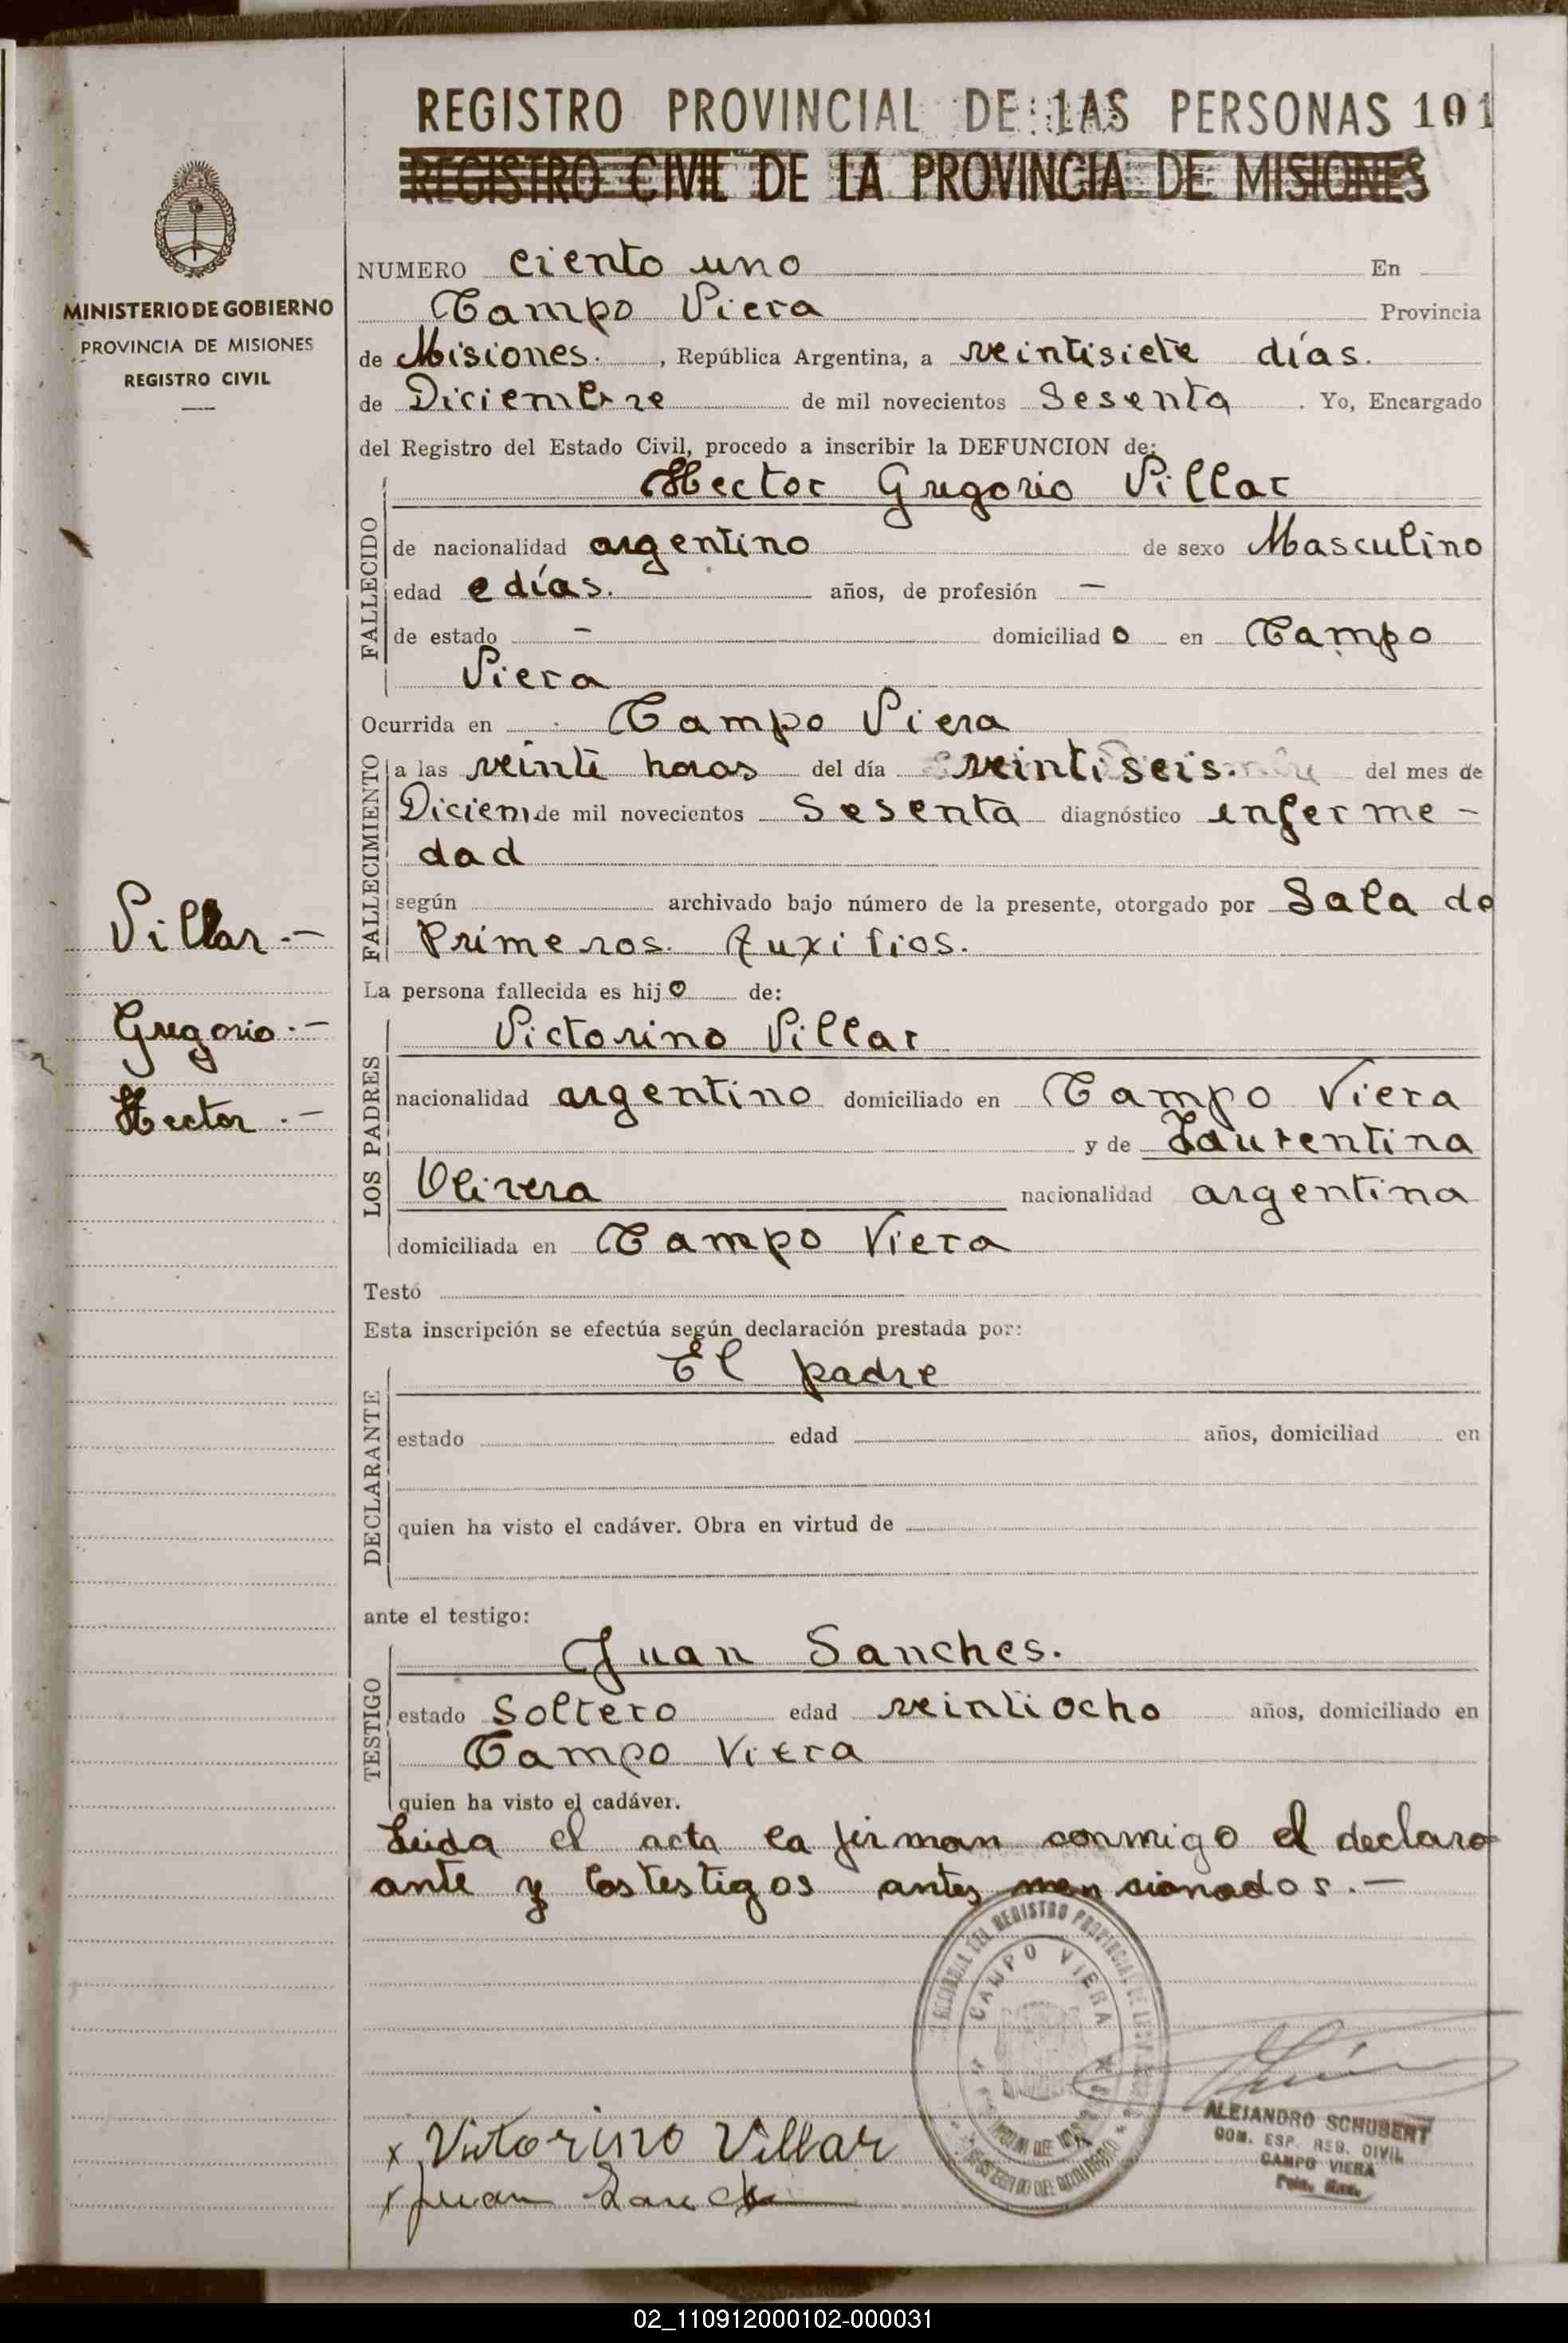 REGISTRO PROVINCIAL DE LAS PERSONAS 101
REGISTRO CIVIL DE LA PROVINCIA DE MISIONES
MINISTERIO DE GOBIERNO
PROVINCIA DE MISIONES
REGISTRO CIVIL
NUMERO ciento uno En
Campo Viera Provincia
de Misiones. , República Argentina, a veintisiete días.
de Diciembre de mil novecientos Sesenta . Yo, Encargado
del Registro del Estado Civil, procedo a inscribir la DEFUNCION de:
Hector Gregorio Villar
FALLECIDO
de nacionalidad argentino de sexo Masculino
edad días. años, de profesión —
de estado — domiciliado en Campo
Viera
Ocurrida en Campo Viera
FALLECIMIENTO
a las veinte horas del día veintiseis. del mes de
Diciem de mil novecientos Sesenta diagnóstico enferme-
dad
según archivado bajo número de la presente, otorgado por Sala de
Primeros. Auxilios.
Villar.—
Gregorio.—
Hector.—
La persona fallecida es hijo de:
LOS PADRES
Victorino Villar
nacionalidad argentino domiciliado en Campo Viera
y de Laurentina
Olivera nacionalidad argentina
domiciliada en Campo Viera
Testó
Esta inscripción se efectúa según declaración prestada por:
DECLARANTE
El padre
estado edad años, domiciliad en
quien ha visto el cadáver. Obra en virtud de
ante el testigo:
TESTIGO
Juan Sanches.
estado Soltero edad veintiocho años, domiciliado en
Campo Viera
quien ha visto el cadáver.
Leida el acta la firman conmigo el declara
ante y los testigos antes mencionados.—
CAMPO VIERA
x Victorino Villar
x Juan
ALEJANDRO SCHUBERT
ESP. REG. CIVIL
CAMPO VIERA
02_110912000102-000031